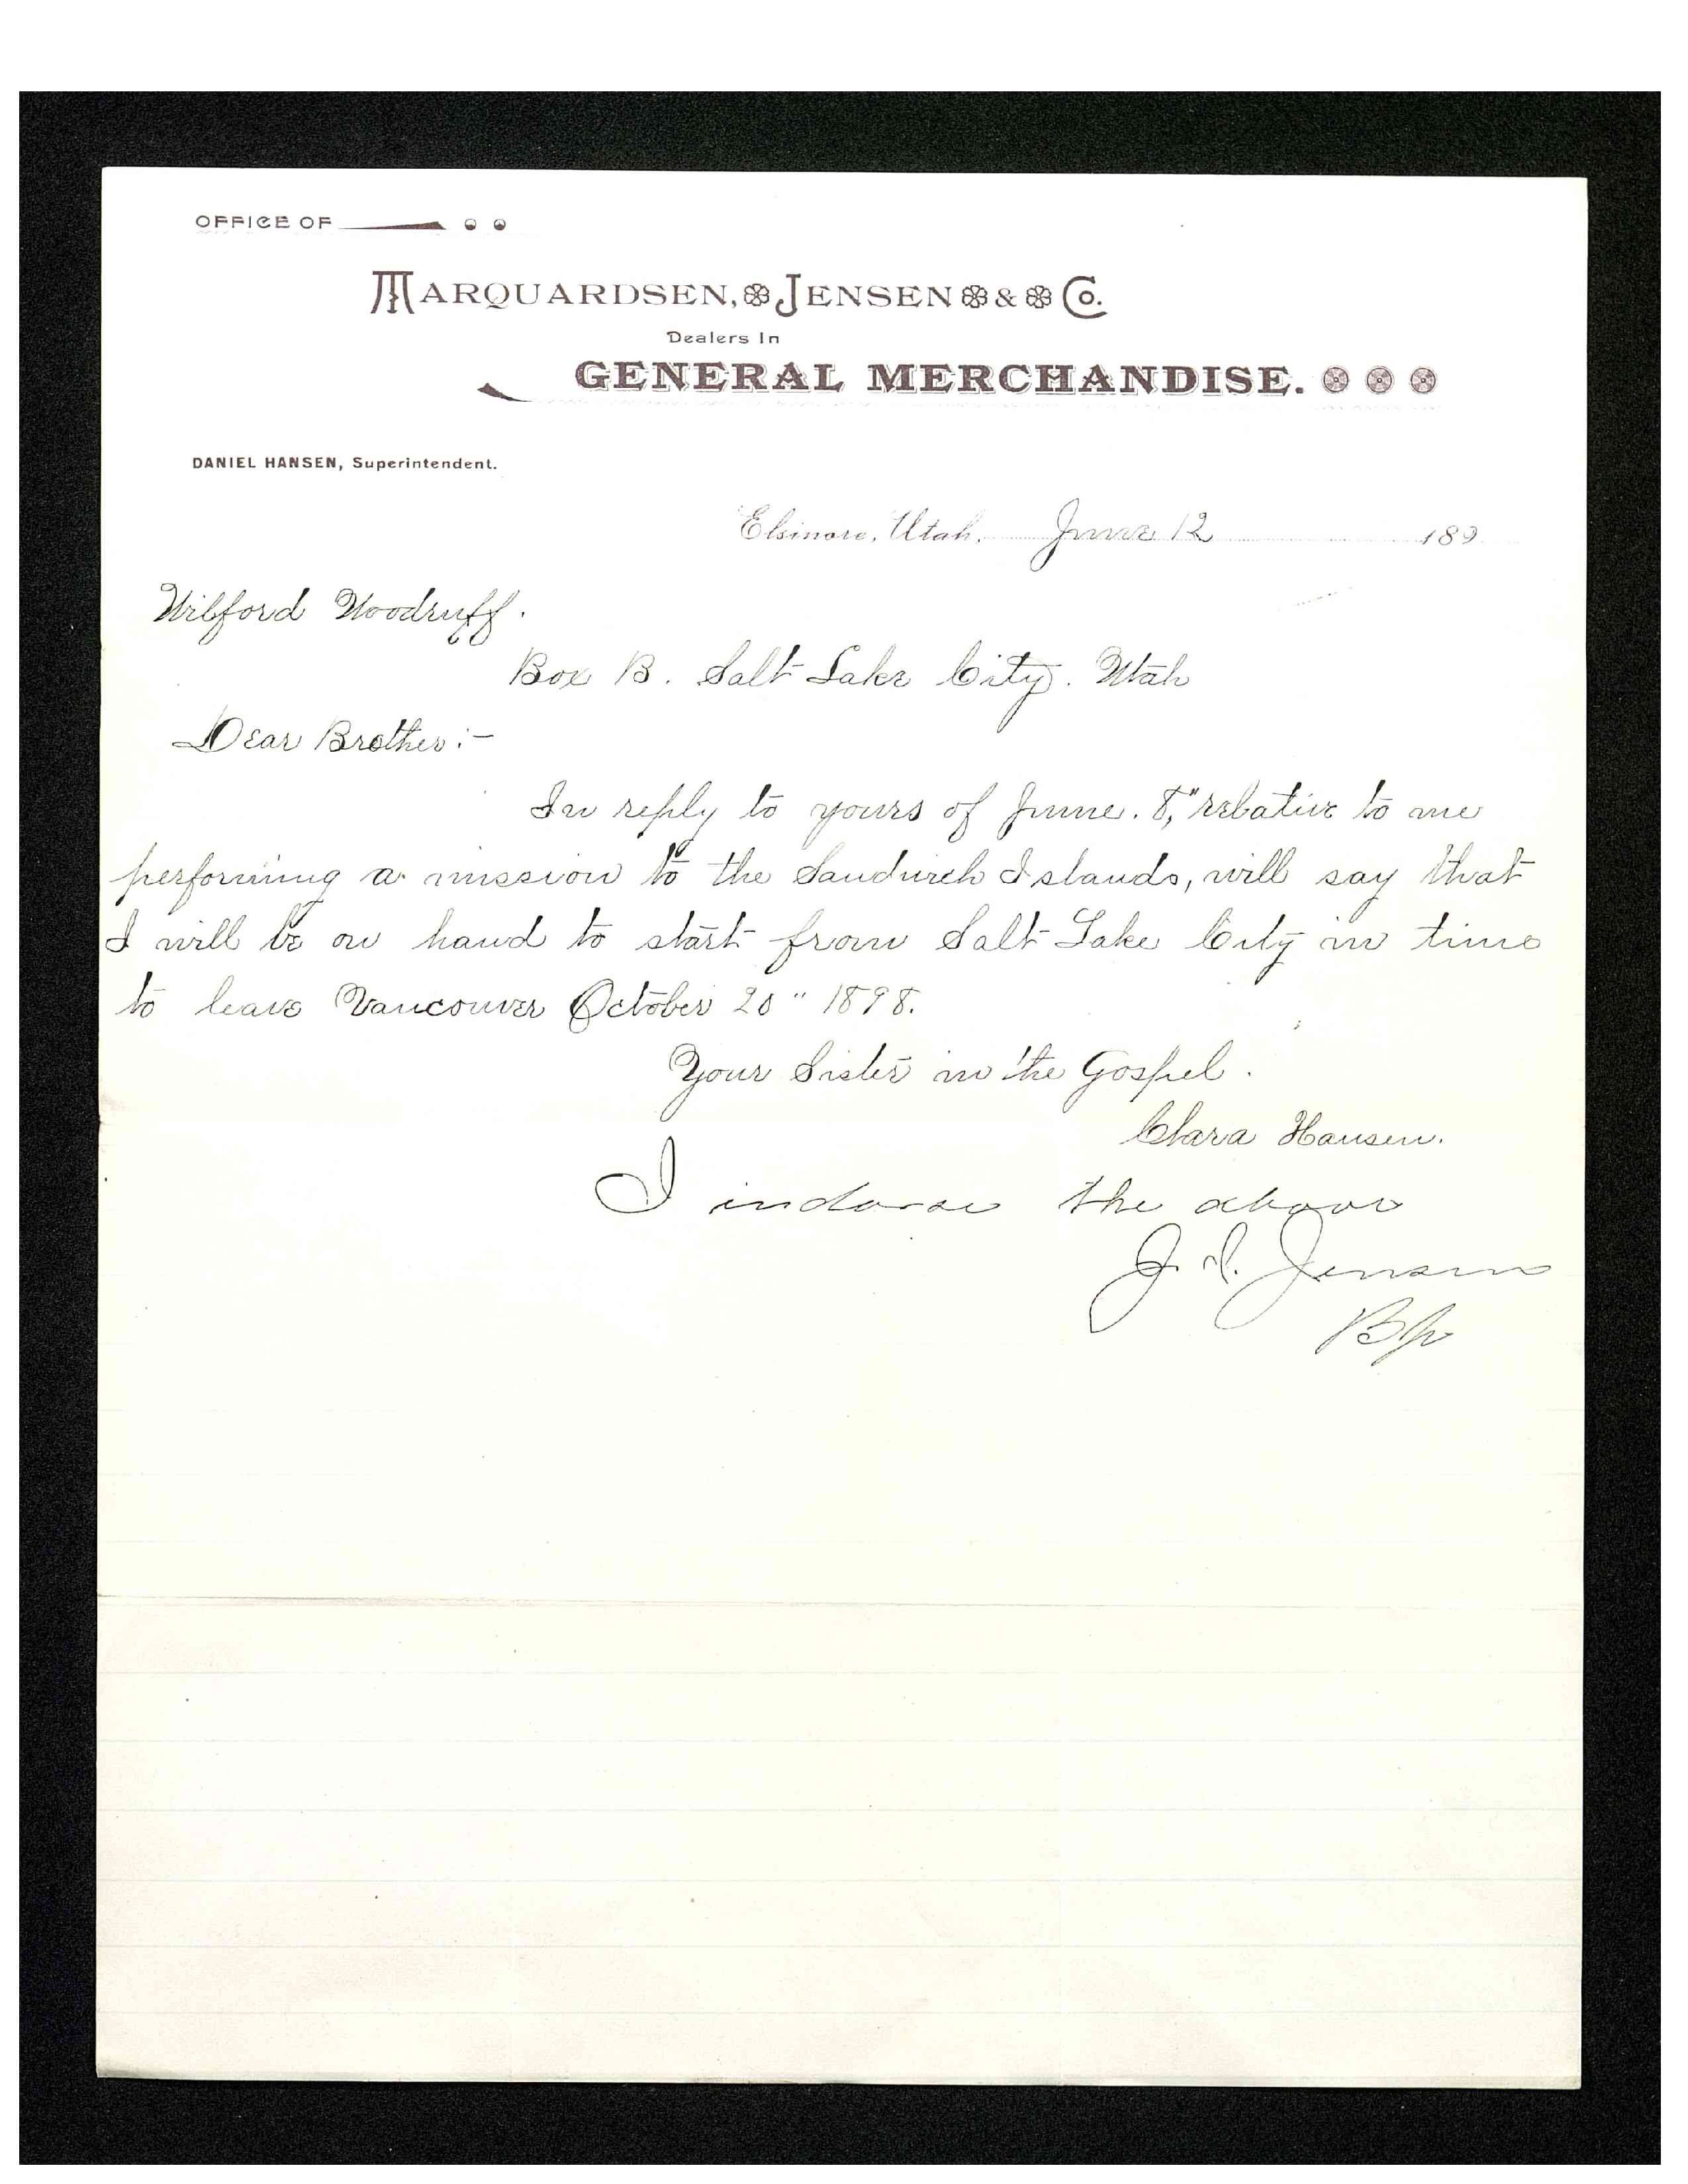 OFFICE OF
MARQUARDSEN, JENSEN & Co.
Dealers In
GENERAL MERCHANDISE.
DANIEL HANSEN, Superintendent.
Elsinore, Utah. June 12 189
Wilford Woodruff.
Box B. Salt Lake City. Utah
Dear Brother:-
In reply to yours of June. 8," relative to me
performing a mission to the Sandwich Islands, will say that
I will be on hand to start from Salt Lake City in time
to leave Vancouver October 20" 1898.
Your Sister in the Gospel.
Clara Hansen.
I indorse the above
J. I. Jensen
Bp